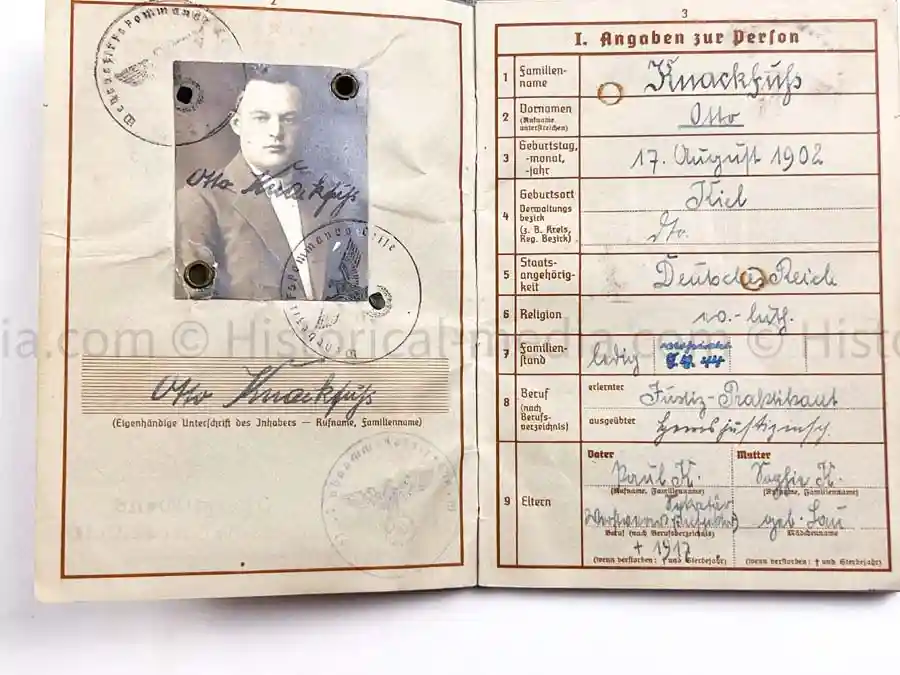 2
Wehrbezirkskommando
Otto Knackfuß
Wehrbezirkskommando
Otto Knackfuß
(Eigenhändige Unterschrift des Inhabers — Rufname, Familienname)
3
I. Angaben zur Person
1 Familien-
name
Knackfuß
2 Vornamen
(Rufname
unterstreichen)
Otto
3 Geburtstag,
-monat,
-jahr
17. August 1902
4 Geburtsort
Verwaltungs
bezirk
(z. B. Kreis,
Reg. Bezirk)
Kiel
Dto.
5 Staats-
angehörig-
keit
Deutsches Reich
6 Religion
ev.-luth.
7 Familien-
stand
ledig
8 Beruf
(nach
Berufs-
verzeichnis)
erlernter
Justiz-Praktikant
ausgeübter
9 Eltern
Vater
Paul K.
(Rufname, Familienname)
Sekretär
Beruf (nach Berufsverzeichnis)
† 1917
(wenn verstorben: † und Sterbejahr)
Mutter
Sophie K.
(Rufname, Familienname)
geb. Lau
Mädchenname
(wenn verstorben: † und Sterbejahr)
ia.com © Historical-media.com © Histor